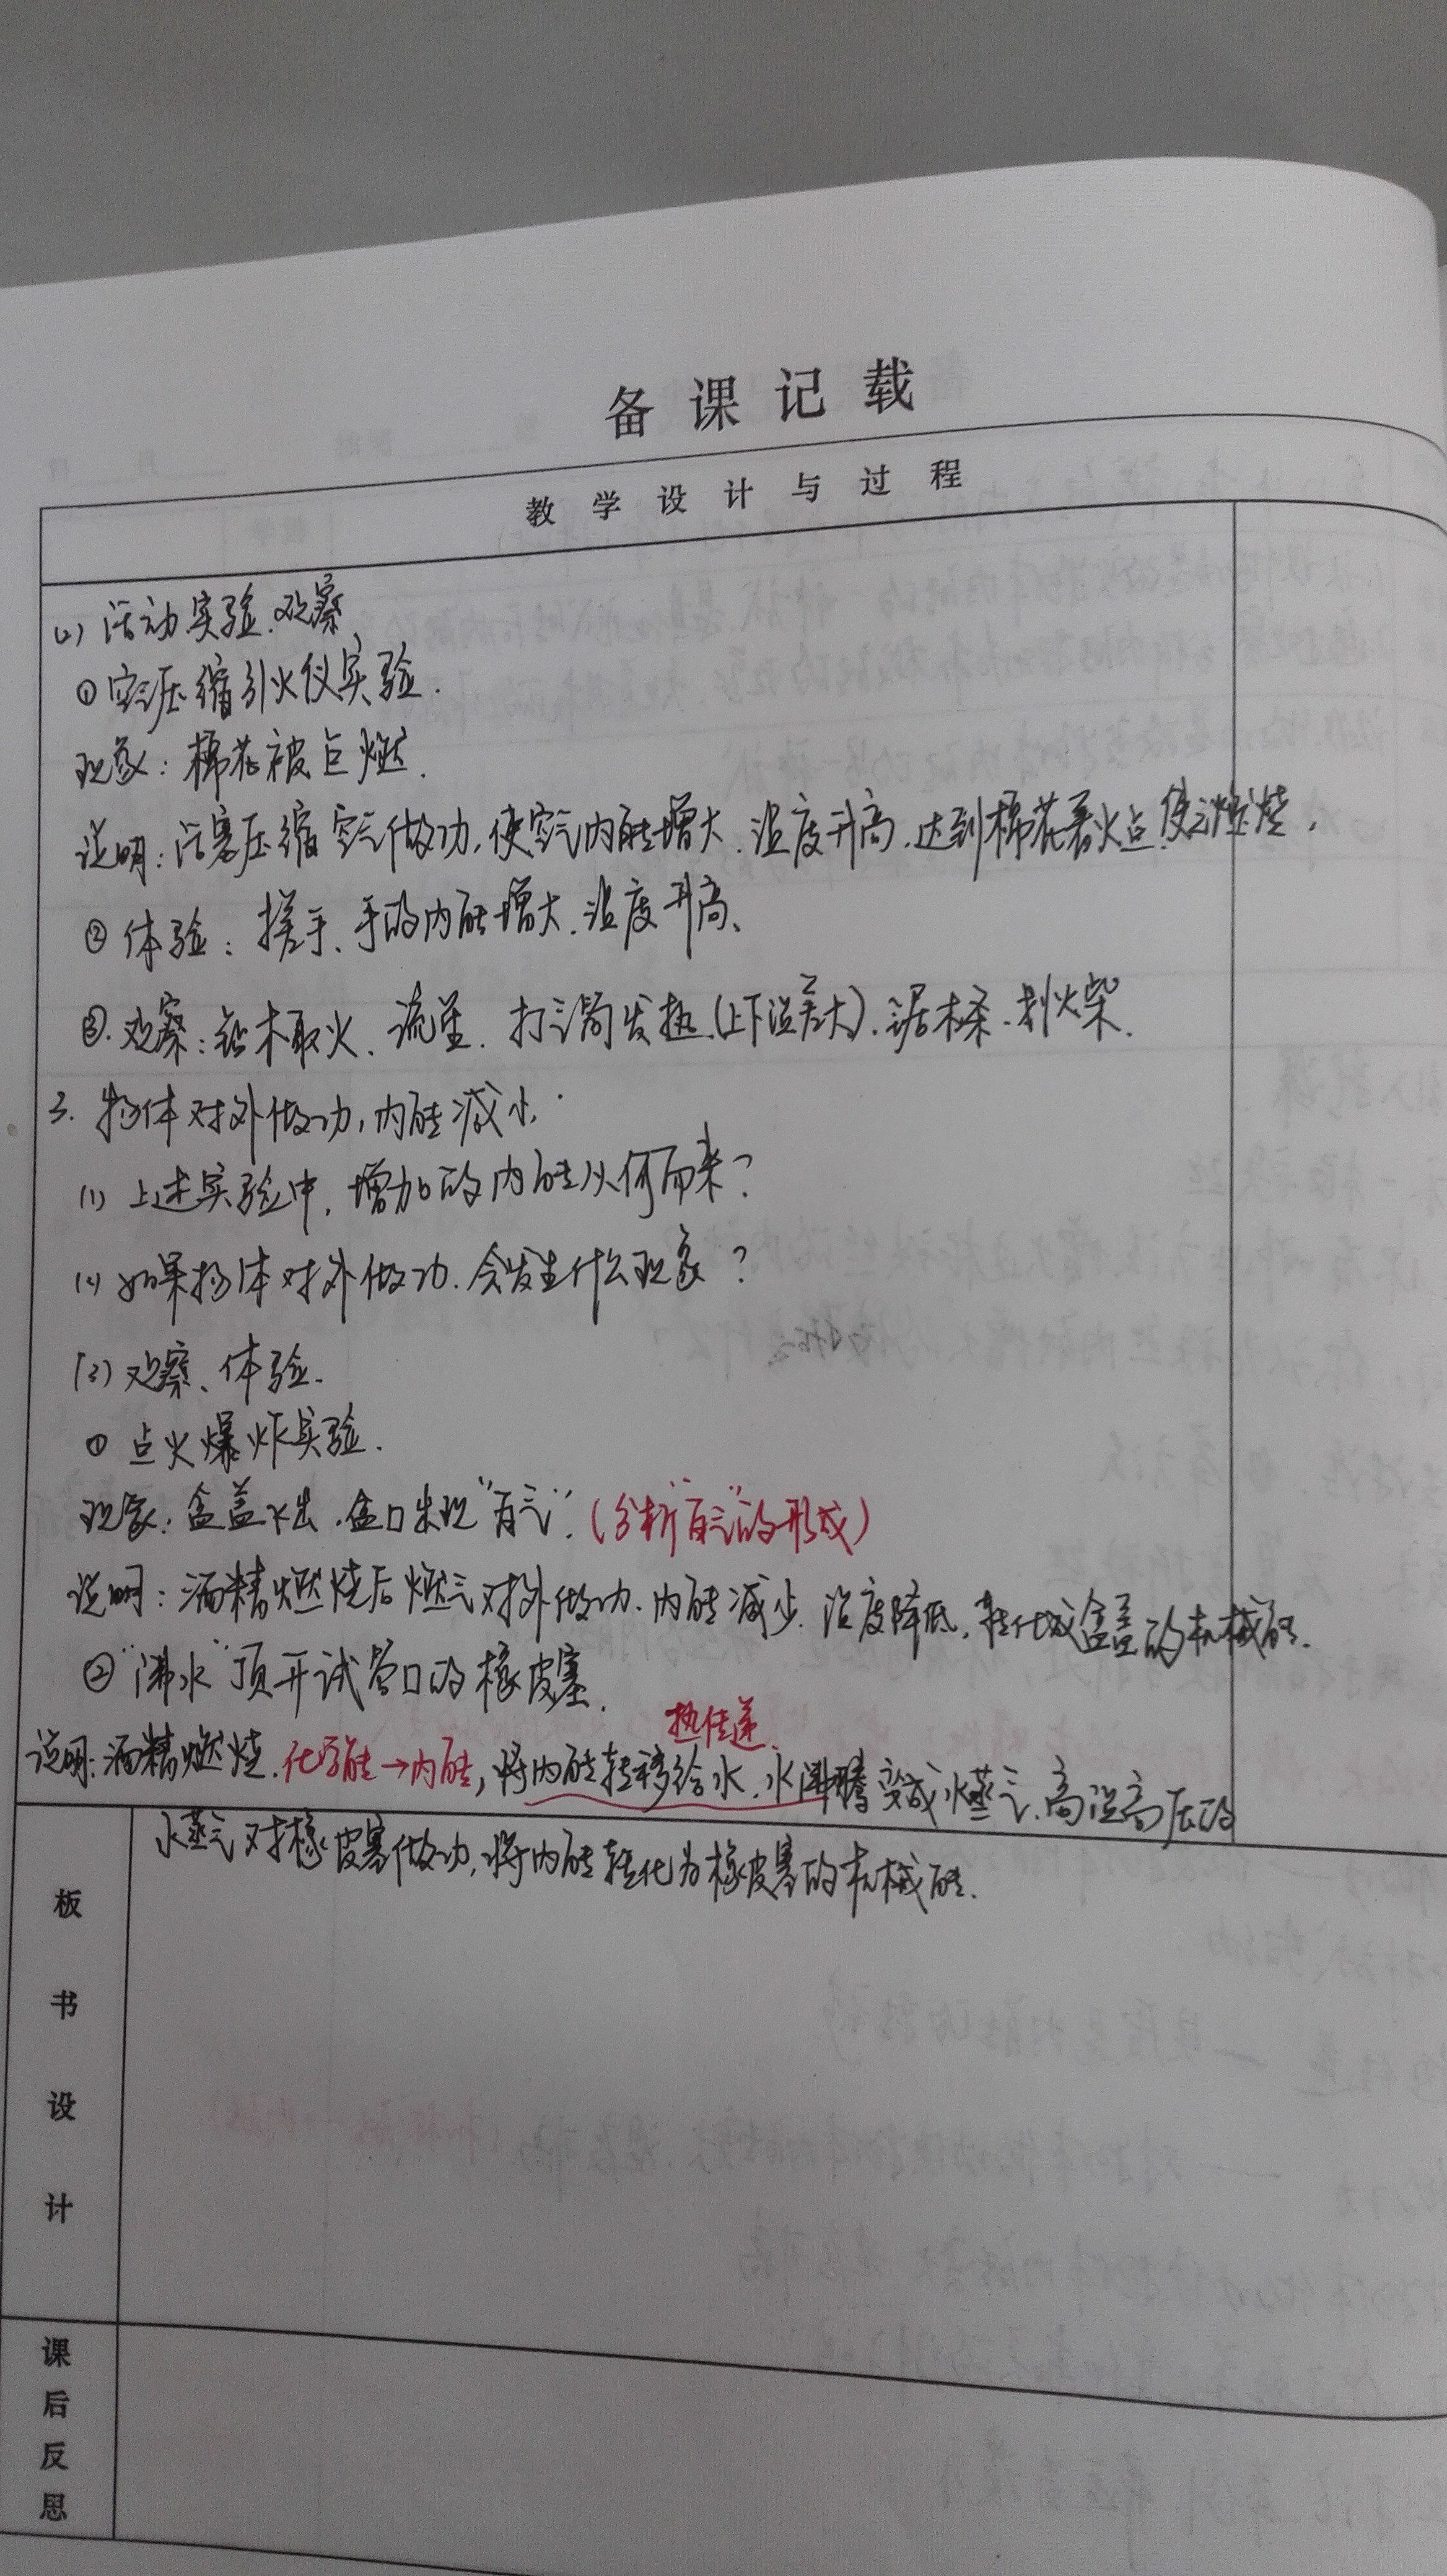 备课记载
教学设计与过程
(2) 活动.实验.观察
① 空气压缩引火仪实验.
现象：棉花被点燃.
说明：活塞压缩空气做功,使空气内能增大.温度升高.达到棉花着火点.使之燃烧.
② 体验：搓手、手的内能增大.温度升高、
③.观察：钻木取火、流星.打气筒发热.(上下温差大).锯木条.划火柴.
3. 物体对外做功,内能减小.
(1) 上述实验中,增加的内能从何而来？
(2) 如果物体对外做功.会发生什么现象？
(3) 观察、体验.
① 点火爆炸实验.
现象：盒盖飞出.盒口出现“白气”.(分析“白气”的形成)
说明：酒精燃烧后燃气对外做功.内能减少.温度降低,转化成盒盖的机械能.
② “沸水”顶开试管口的橡皮塞.
热传递.
说明：酒精燃烧.化学能→内能,将内能转移给水.水沸腾变成水蒸气.高温高压的
水蒸气对橡皮塞做功,将内能转化为橡皮塞的机械能.
板书设计
课后反思